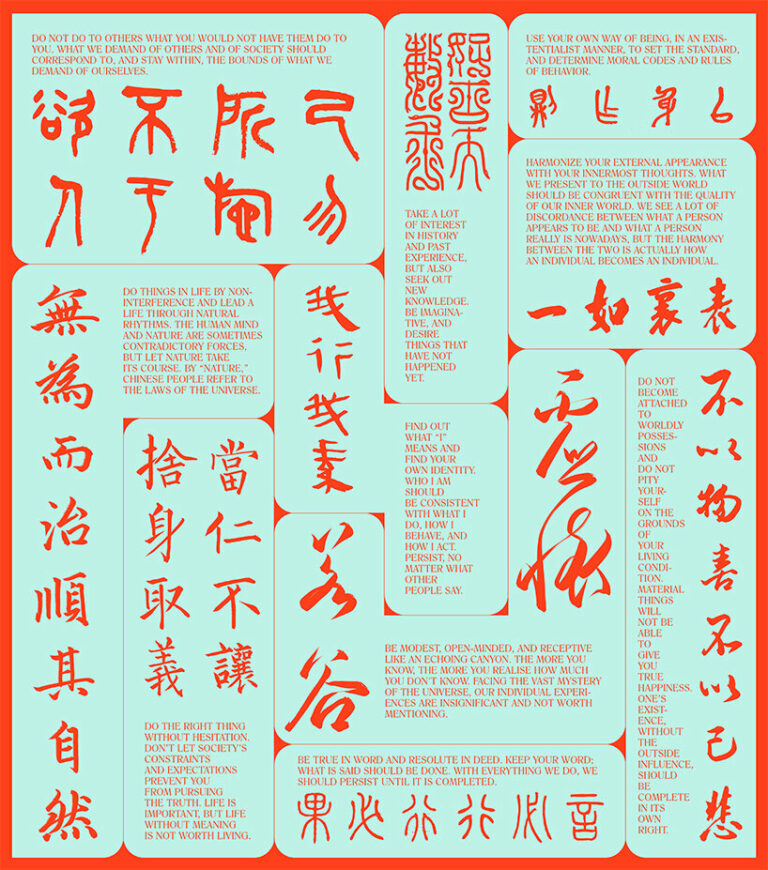 DO NOT DO TO OTHERS WHAT YOU WOULD NOT HAVE THEM DO TO
YOU. WHAT WE DEMAND OF OTHERS AND OF SOCIETY SHOULD
CORRESPOND TO, AND STAY WITHIN, THE BOUNDS OF WHAT WE
DEMAND OF OURSELVES.
己所不欲
勿施于人
TAKE A LOT
OF INTEREST
IN HISTORY
AND PAST
EXPERIENCE,
BUT ALSO
SEEK OUT
NEW
KNOWLEDGE.
BE IMAGINA-
TIVE, AND
DESIRE
THINGS THAT
HAVE NOT
HAPPENED
YET.
USE YOUR OWN WAY OF BEING, IN AN EXIS-
TENTIALIST MANNER, TO SET THE STANDARD,
AND DETERMINE MORAL CODES AND RULES
OF BEHAVIOR.
以身作則
HARMONIZE YOUR EXTERNAL APPEARANCE
WITH YOUR INNERMOST THOUGHTS. WHAT
WE PRESENT TO THE OUTSIDE WORLD
SHOULD BE CONGRUENT WITH THE QUALITY
OF OUR INNER WORLD. WE SEE A LOT OF
DISCORDANCE BETWEEN WHAT A PERSON
APPEARS TO BE AND WHAT A PERSON
REALLY IS NOWADAYS, BUT THE HARMONY
BETWEEN THE TWO IS ACTUALLY HOW
AN INDIVIDUAL BECOMES AN INDIVIDUAL.
表裏如一
無為而治順其自然
DO THINGS IN LIFE BY NON-
INTERFERENCE AND LEAD A
LIFE THROUGH NATURAL
RHYTHMS. THE HUMAN MIND
AND NATURE ARE SOMETIMES
CONTRADICTORY FORCES,
BUT LET NATURE TAKE
ITS COURSE. BY “NATURE,”
CHINESE PEOPLE REFER TO
THE LAWS OF THE UNIVERSE.
我行我素
FIND OUT
WHAT “I”
MEANS AND
FIND YOUR
OWN IDENTITY.
WHO I AM
SHOULD
BE CONSISTENT
WITH WHAT I
DO, HOW I
BEHAVE, AND
HOW I ACT.
PERSIST, NO
MATTER WHAT
OTHER
PEOPLE SAY.
當仁不讓
捨身取義
DO THE RIGHT THING
WITHOUT HESITATION.
DON’T LET SOCIETY’S
CONSTRAINTS
AND EXPECTATIONS
PREVENT YOU
FROM PURSUING
THE TRUTH. LIFE IS
IMPORTANT, BUT LIFE
WITHOUT MEANING
IS NOT WORTH LIVING.
虛懷
若谷
BE MODEST, OPEN-MINDED, AND RECEPTIVE
LIKE AN ECHOING CANYON. THE MORE YOU
KNOW, THE MORE YOU REALISE HOW MUCH
YOU DON’T KNOW. FACING THE VAST MYSTERY
OF THE UNIVERSE, OUR INDIVIDUAL EXPERI-
ENCES ARE INSIGNIFICANT AND NOT WORTH
MENTIONING.
不以物喜不以己悲
DO NOT
BECOME
ATTACHED
TO
WORLDLY
POSSES-
SIONS
AND
DO NOT
PITY
YOUR-
SELF
ON THE
GROUNDS
OF
YOUR
LIVING
CONDI-
TION.
MATERIAL
THINGS
WILL
NOT BE
ABLE
TO
GIVE
YOU
TRUE
HAPPINESS.
ONE’S
EXIST-
ENCE,
WITHOUT
THE
OUTSIDE
INFLUENCE,
SHOULD
BE
COMPLETE
IN ITS
OWN
RIGHT.
BE TRUE IN WORD AND RESOLUTE IN DEED. KEEP YOUR WORD;
WHAT IS SAID SHOULD BE DONE. WITH EVERYTHING WE DO, WE
SHOULD PERSIST UNTIL IT IS COMPLETED.
言必行行必果